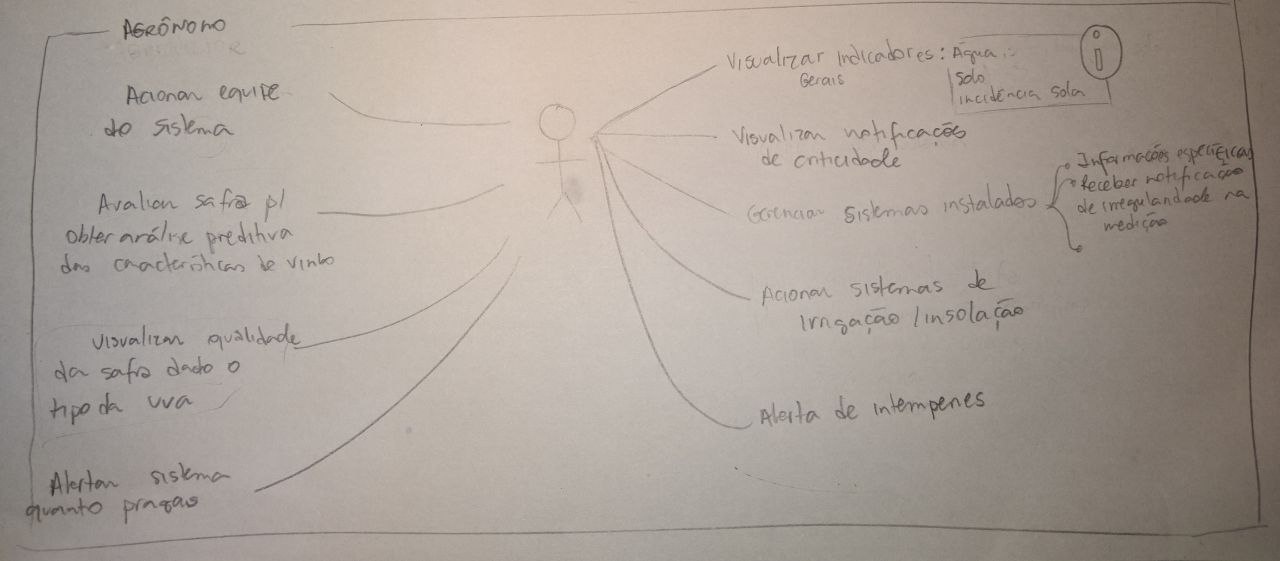 AGRÔNOMO
Acionar equipe
do sistema
Avaliar safra p/
obter análise preditiva
das características de vinho
Visualizar qualidade
da safra dado o
tipo da uva
Alertar sistema
quanto pragas
Visualizar indicadores: Água
Gerais
Solo
incidência sola
Visualizar notificações
de criticidade
Gerenciar sistemas instalados
Informações específicas
Receber notificação
de irregularidade na
medição
Acionar sistemas de
Irrigação / insolação
Alerta de intemperes